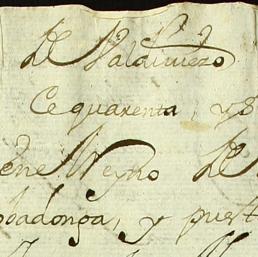 De Valdiviezo
Cequarenta, y s
ene Neyro De
obadonga, y puest